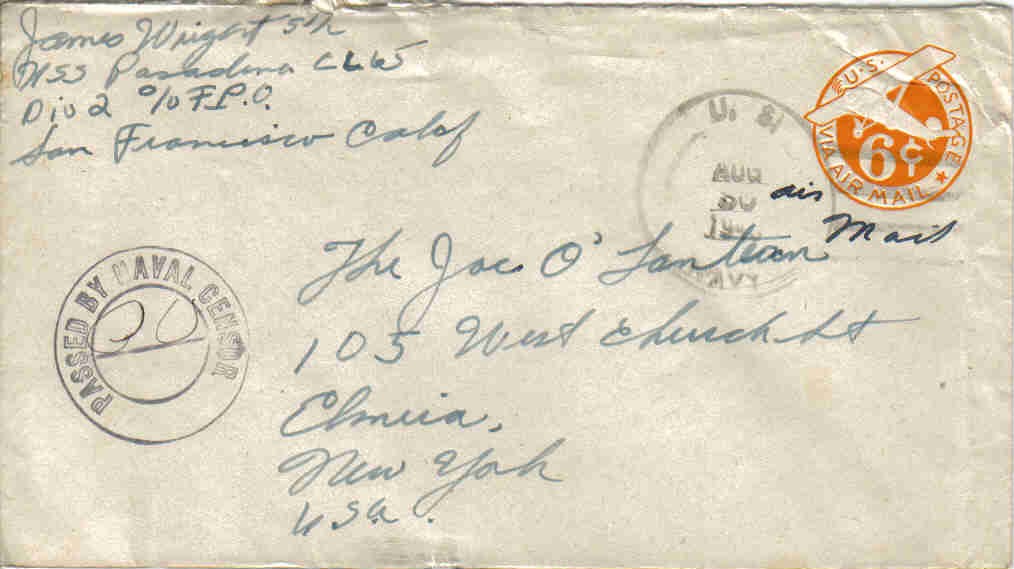 James Wright S1/c
USS Pasadena CL65
Div 2 c/o F.P.O.
San Francisco Calif
U.S. POSTAGE
6¢
VIA AIR MAIL
U. S.
AUG
30
NAVY
air
Mail
PASSED BY NAVAL CENSOR
The Jac O' Lantern
105 West Church St
Elmira,
New York
USA.